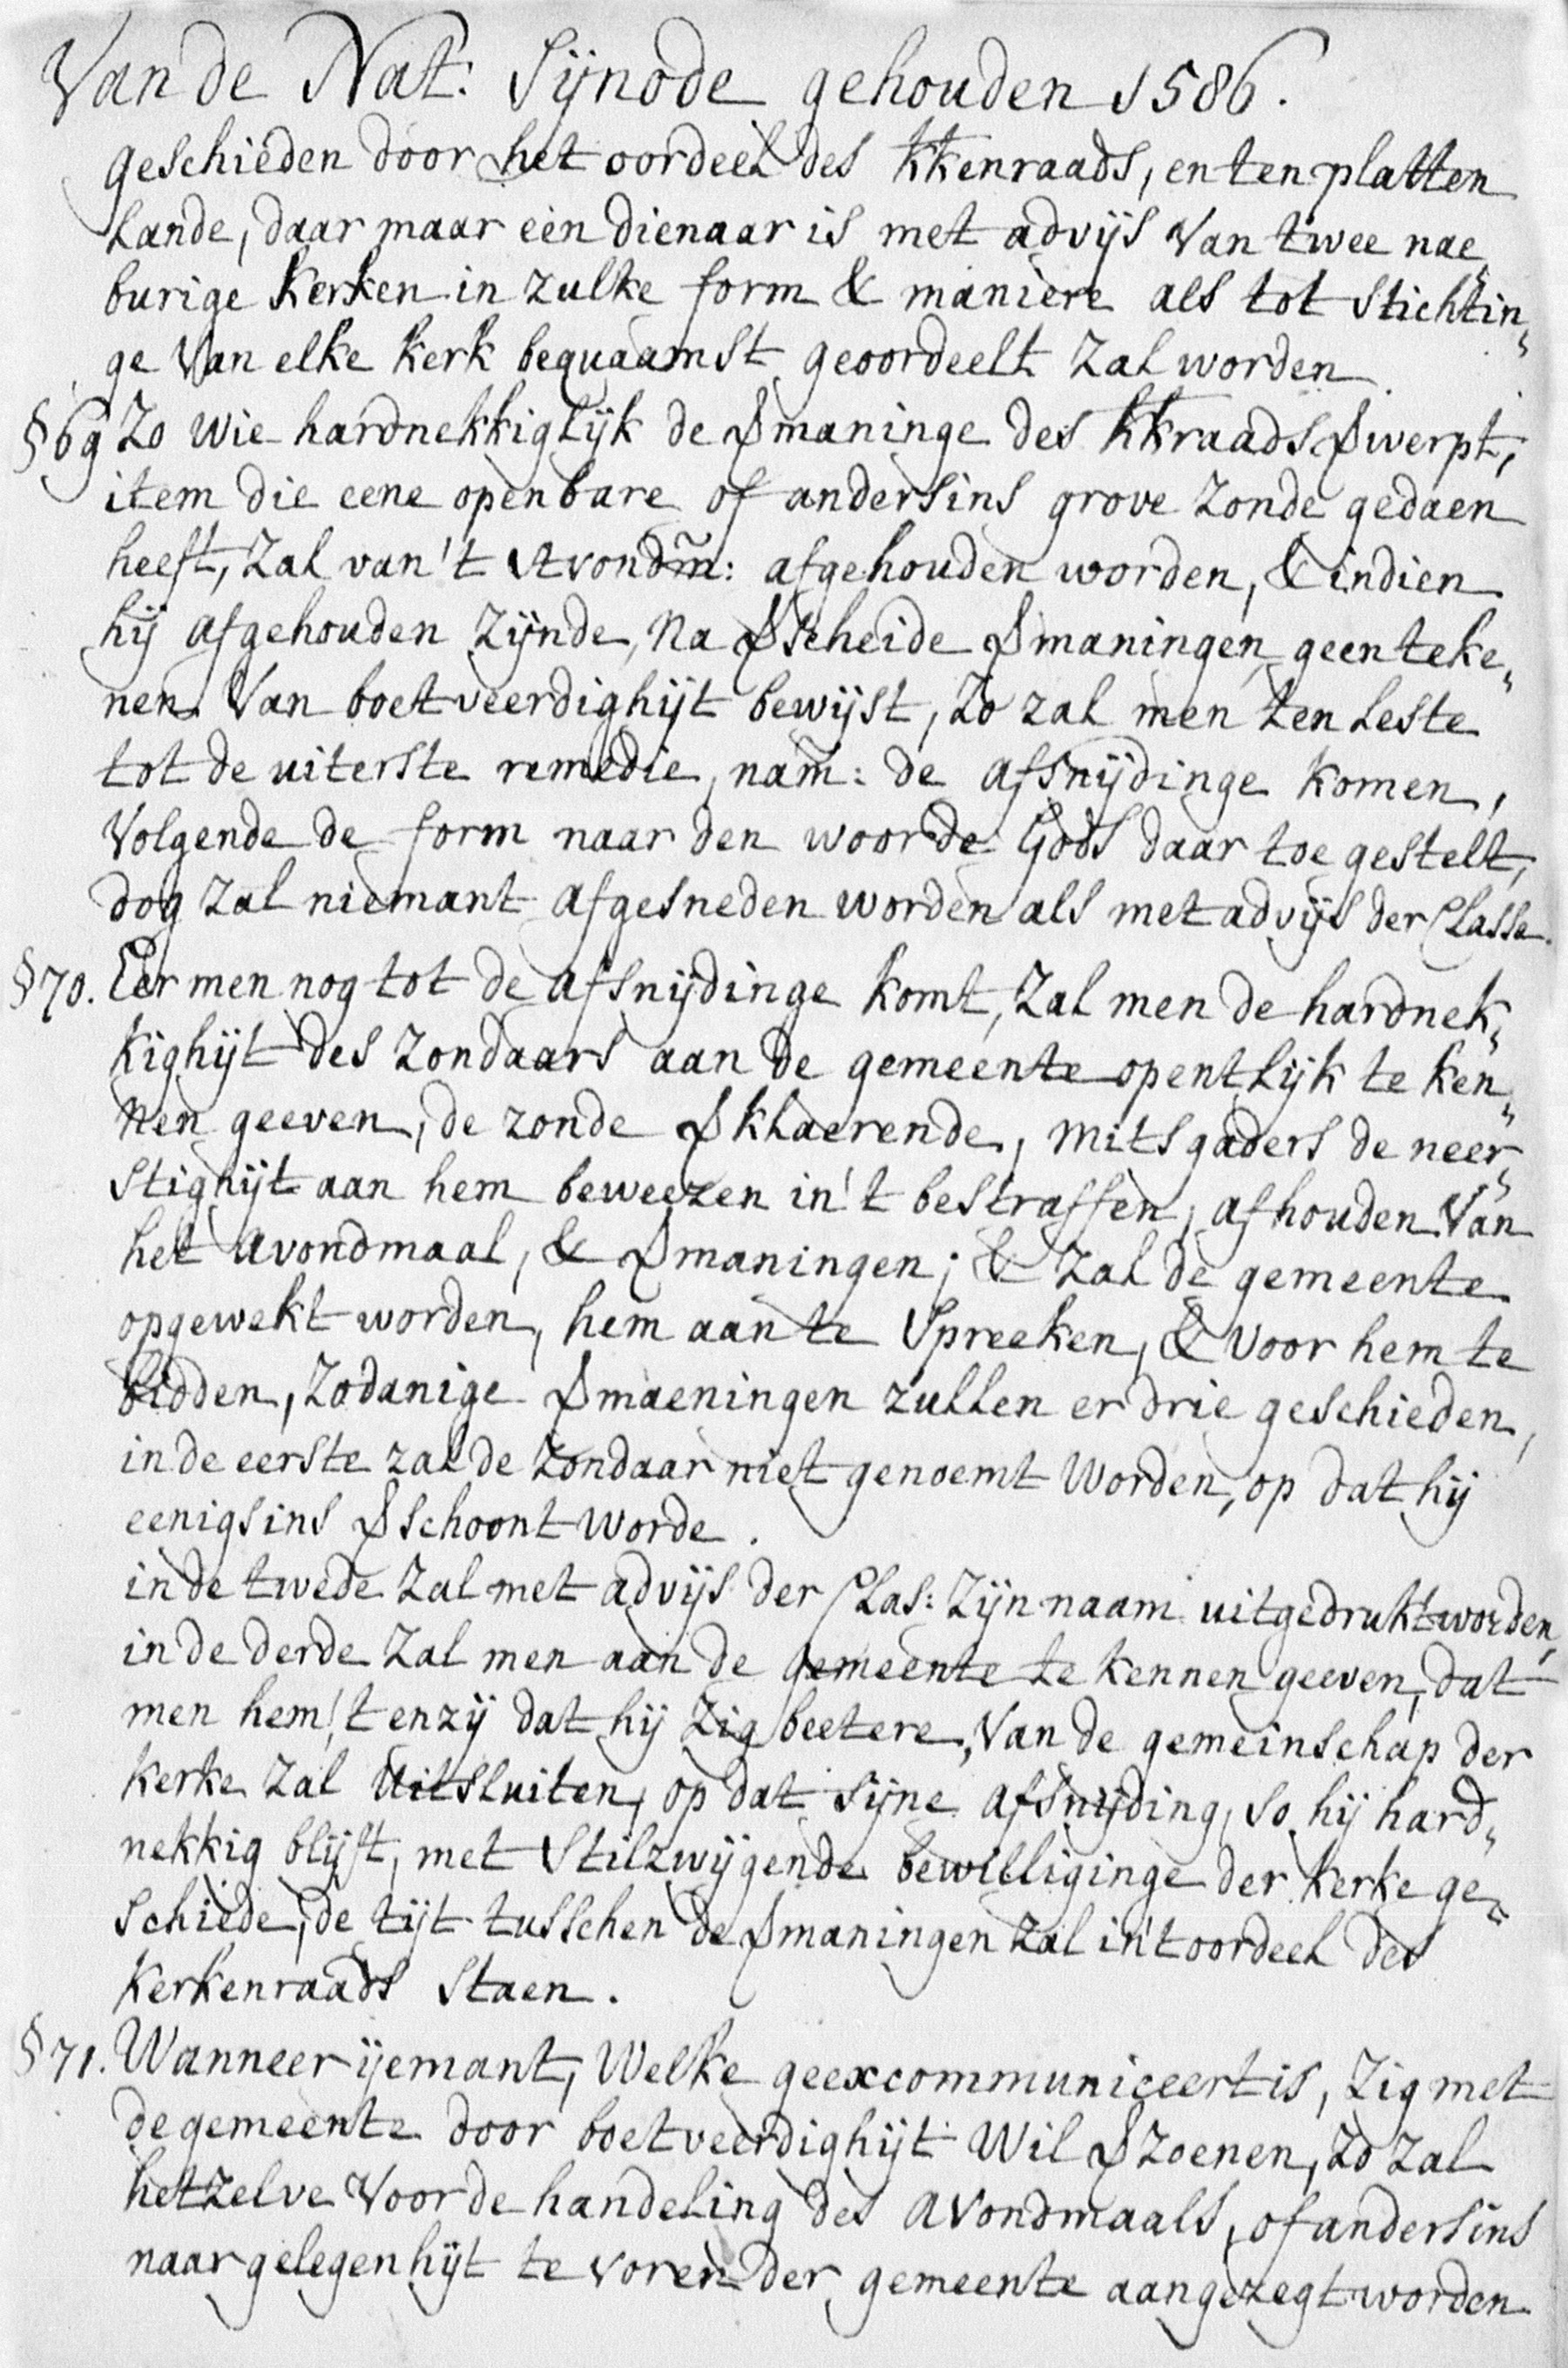 Van de Nat: Sÿnode gehouden 1586.
geschieden door het oordeel des kkenraads, en ten platten
Lande, daar maar een dienaar is met advijs Van twee nae„
burige Kerken in zulke form & maniere als tot stichtin„
ge Van elke Kerk bequaamst geoordeelt zal worden
§ 69 Zo wie hardnekkiglijk de ꝟmaninge des kkraads ꝟwerpt,
item die eene openbare of andersins grove zonde gedaen
heeft, Zal van't Avondm̃: afgehouden worden, & indien
hij afgehouden Zijnde, na ꝟscheide ꝟmaningen geen teke„
nen Van boetveerdighijt bewijst, Zo zal men ten Leste
tot de uiterste remedie, nam̃: de afsnijdinge Komen,
Volgende de form naar den woorde Gods daar toe gestelt,
dog zal niemant afgesneden worden als met advijs der Classe.
§ 70. Eer men nog tot de afsnijdinge komt, Zal men de hardnek„
kighijt des Zondaars aan de gemeente opentlijk te ken„
nen geeven, de zonde ꝟklaerende, mitsgaders de neer„
stighijt aan hem beweezen in't bestraffen, afhouden Van
het avondmaal, & ꝟmaningen; & Zal de gemeente
opgewekt worden, hem aan te Spreeken, & voor hem te
bidden, Zodanige ꝟmaeningen zullen er drie geschieden,
in de eerste zal de Zondaar niet genoemt Worden, op dat hij
eenigsins ꝟschoont worde.
in de twede Zal met advijs der Clas: Zijn naam uitgedrukt worden,
in de derde Zal men aan de gemeente te kennen geeven, dat
men hem, 't enzij dat hij Zig beetere, Van de gemeinschap der
Kerke Zal Uitsluiten, op dat sijne afsnijding, so hij hard„
nekkig blijft, met Stilzwijgende bewilliginge der kerke ge„
schiede, de tijt tusschen de ꝟmaningen Zal in't oordeel des
Kerkenraads Staen.
§ 71. Wanneer ijemant, Welke geexcommuniceert is, Zig met
de gemeente door boetveerdighijt Wil ꝟzoenen, Zo Zal
het Zelve Voor de handeling des avondmaals, of andersins
naar gelegenhijt te voren der gemeente aangezegt worden